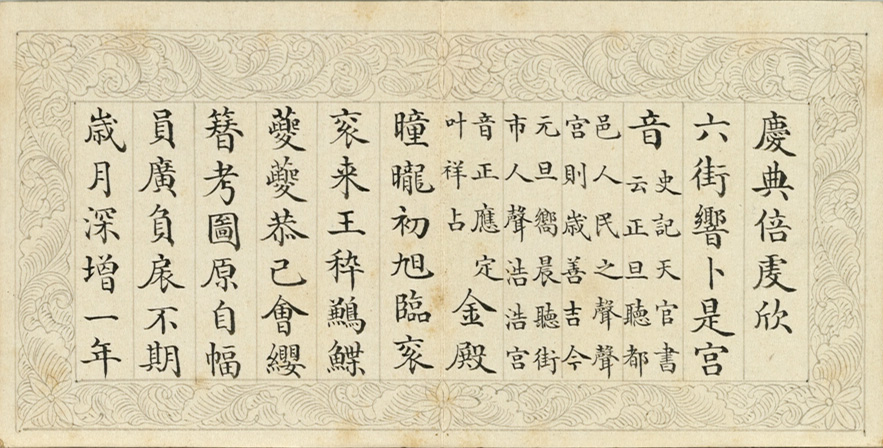 慶典倍虔欣
六街響卜是宮
音
史記天官書
云正旦聽都
邑人民之聲聲
宮則歳善吉今
元旦嚮晨聽街
市人聲浩浩宮
音正應定
叶祥占
金殿
曈曨初旭臨衮
衮来王稡鶼鰈
夔夔恭己會纓
簪考圖原自幅
員廣負扆不期
歳月深增一年